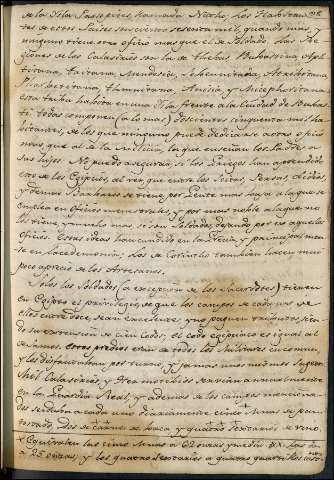 de la Isla Prosopites, llamada Natho. Los Habitan
tes de estos Países son ciento sesenta mil, quando mas, y
ninguno tiene otro oficio mas que el de Soldado. Las Re
giones de los Calasirios son la de Thebas Bubastina, Aph
titana, Taitana, Mendesia, Sebennitada, Atrebitana
Pharbetitana, Thmuitana, Anisia, y Micephoritana
esta tribu habita en una Isla frente a la Ciudad de Bubas
ti. Todos componen (a lo mas) doscientos cinquenta mil ha
bitantes, de los que ninguno puede dedicarse a otro oficio
mas que al de la Milicia, la que enseñan los Padres a
sus hijos. No puedo asegurar si los Griegos han aprendido
esto de los Egipcios, al ver que entre los Scitas, Persas, Lidios,
y demas Barbaros se tiene por Gente mas baja a la que se
emplea en Oficios menestrales, y por mas noble a la que no
los tiene, y mucho mas si son Soldados, dejando por eso aquellos
oficios. Estas ideas han cundido en la Grecia, y principalmen
te en Lacedemonia; Los de Corintho tambien hacen muy
poco aprecio de los Artesanos.
Solos los Soldados (a excepcion de los Sacerdotes) tienen
en Egipto el privilegio, de que los campos de cada uno de
ellos entre doce, sean excelentes y no paguen tributos, sien
do su extension de cien Codos, el codo egipcio es igual al
de Samos. Estos predios eran de todos los Militares en comun,
y los disfrutaban por turno, y jamas unos mismos. Luego
mil Calasirios y Hermotibios servian annualmente
en la Guardia Real, y ademas de los campos menciona
dos se daba a cada uno diariamente cinco Minas de pan
tostado, dos de carne de baca, y quatro sextarios de vino.
X Equivalen las cinco Minas a 62 onzas y media. Las dos
a 25 onzas, y los quatro Sextarios a quatro quartillos casi